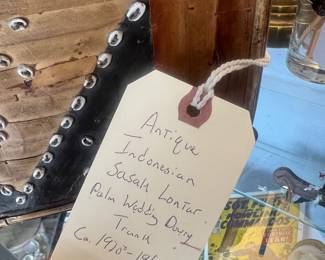 Antique
Indonesian
Sasak Lontar
Palm Wedding Dowry
Trunk
Ca. 1910's-19